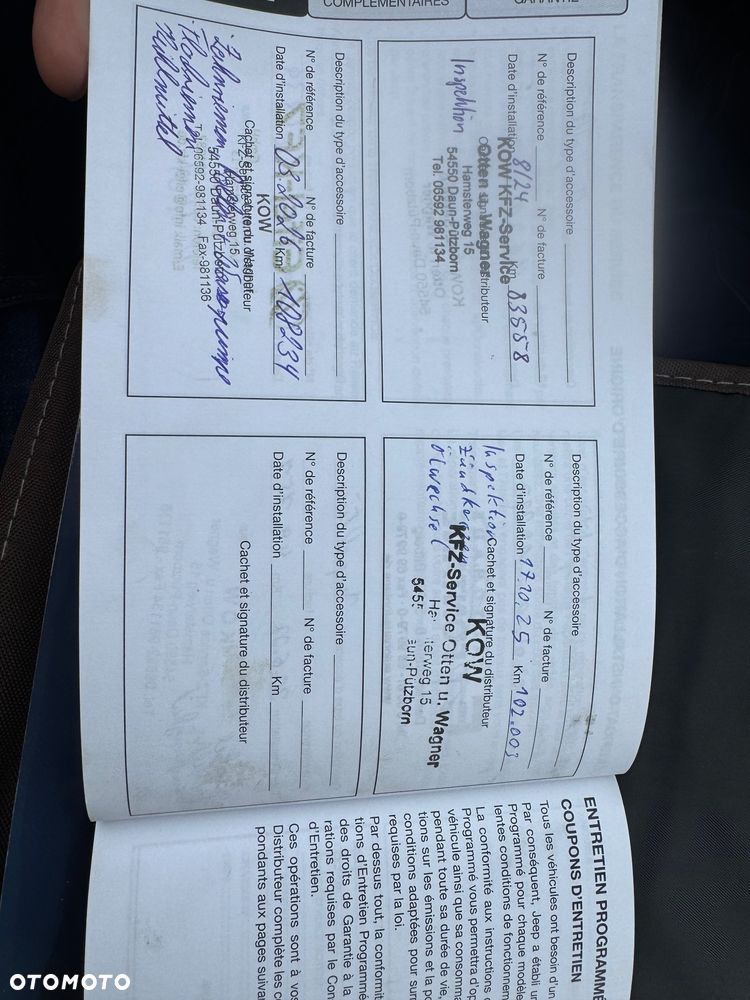 COMPLEMENTAIRES
GARANTIE
Description du type d'accessoire
N° de référence N° de facture
Date d'installation 8/24 Km 83558
Inspektion
KOW KFZ-Service
Otten u. Wagner
Hamsterweg 15
54550 Daun-Pützborn
Tel. 06592 981134
Description du type d'accessoire
N° de référence N° de facture
Date d'installation 17.10.25 Km 102.003
Cachet et signature du distributeur
Inspektion
Ölwechsel
KOW
KFZ-Service Otten u. Wagner
erweg 15
aun-Pützborn
Description du type d'accessoire
N° de référence N° de facture
Date d'installation 03.2026 Km 108234
Cachet et signature du distributeur
KOW
Zahnriemen
Kühlmittel
54550 Daun-Pützborn
06592-981134 Fax-981136
Description du type d'accessoire
N° de référence N° de facture
Date d'installation Km
Cachet et signature du distributeur
ENTRETIEN PROGRAMMÉ
COUPONS D'ENTRETIEN
Tous les véhicules ont besoin d'un
Par conséquent, Jeep a établi u
Programmé pour chaque modèle
lentes conditions de fonctionnem
La conformité aux instructions d
Programmé vous permettra d'op
véhicule ainsi que sa consomma
pendant toute sa durée de vie,
tions sur les émissions et la po
conditions adaptées pour surm
requises par la loi.
Par dessus tout, la conformit
tions d'Entretien Programmé
des droits de Garantie à la
rations requises par le Con
d'Entretien.
Ces opérations sont à vos
Distributeur complète les c
pondants aux pages suivan
OTOMOTO